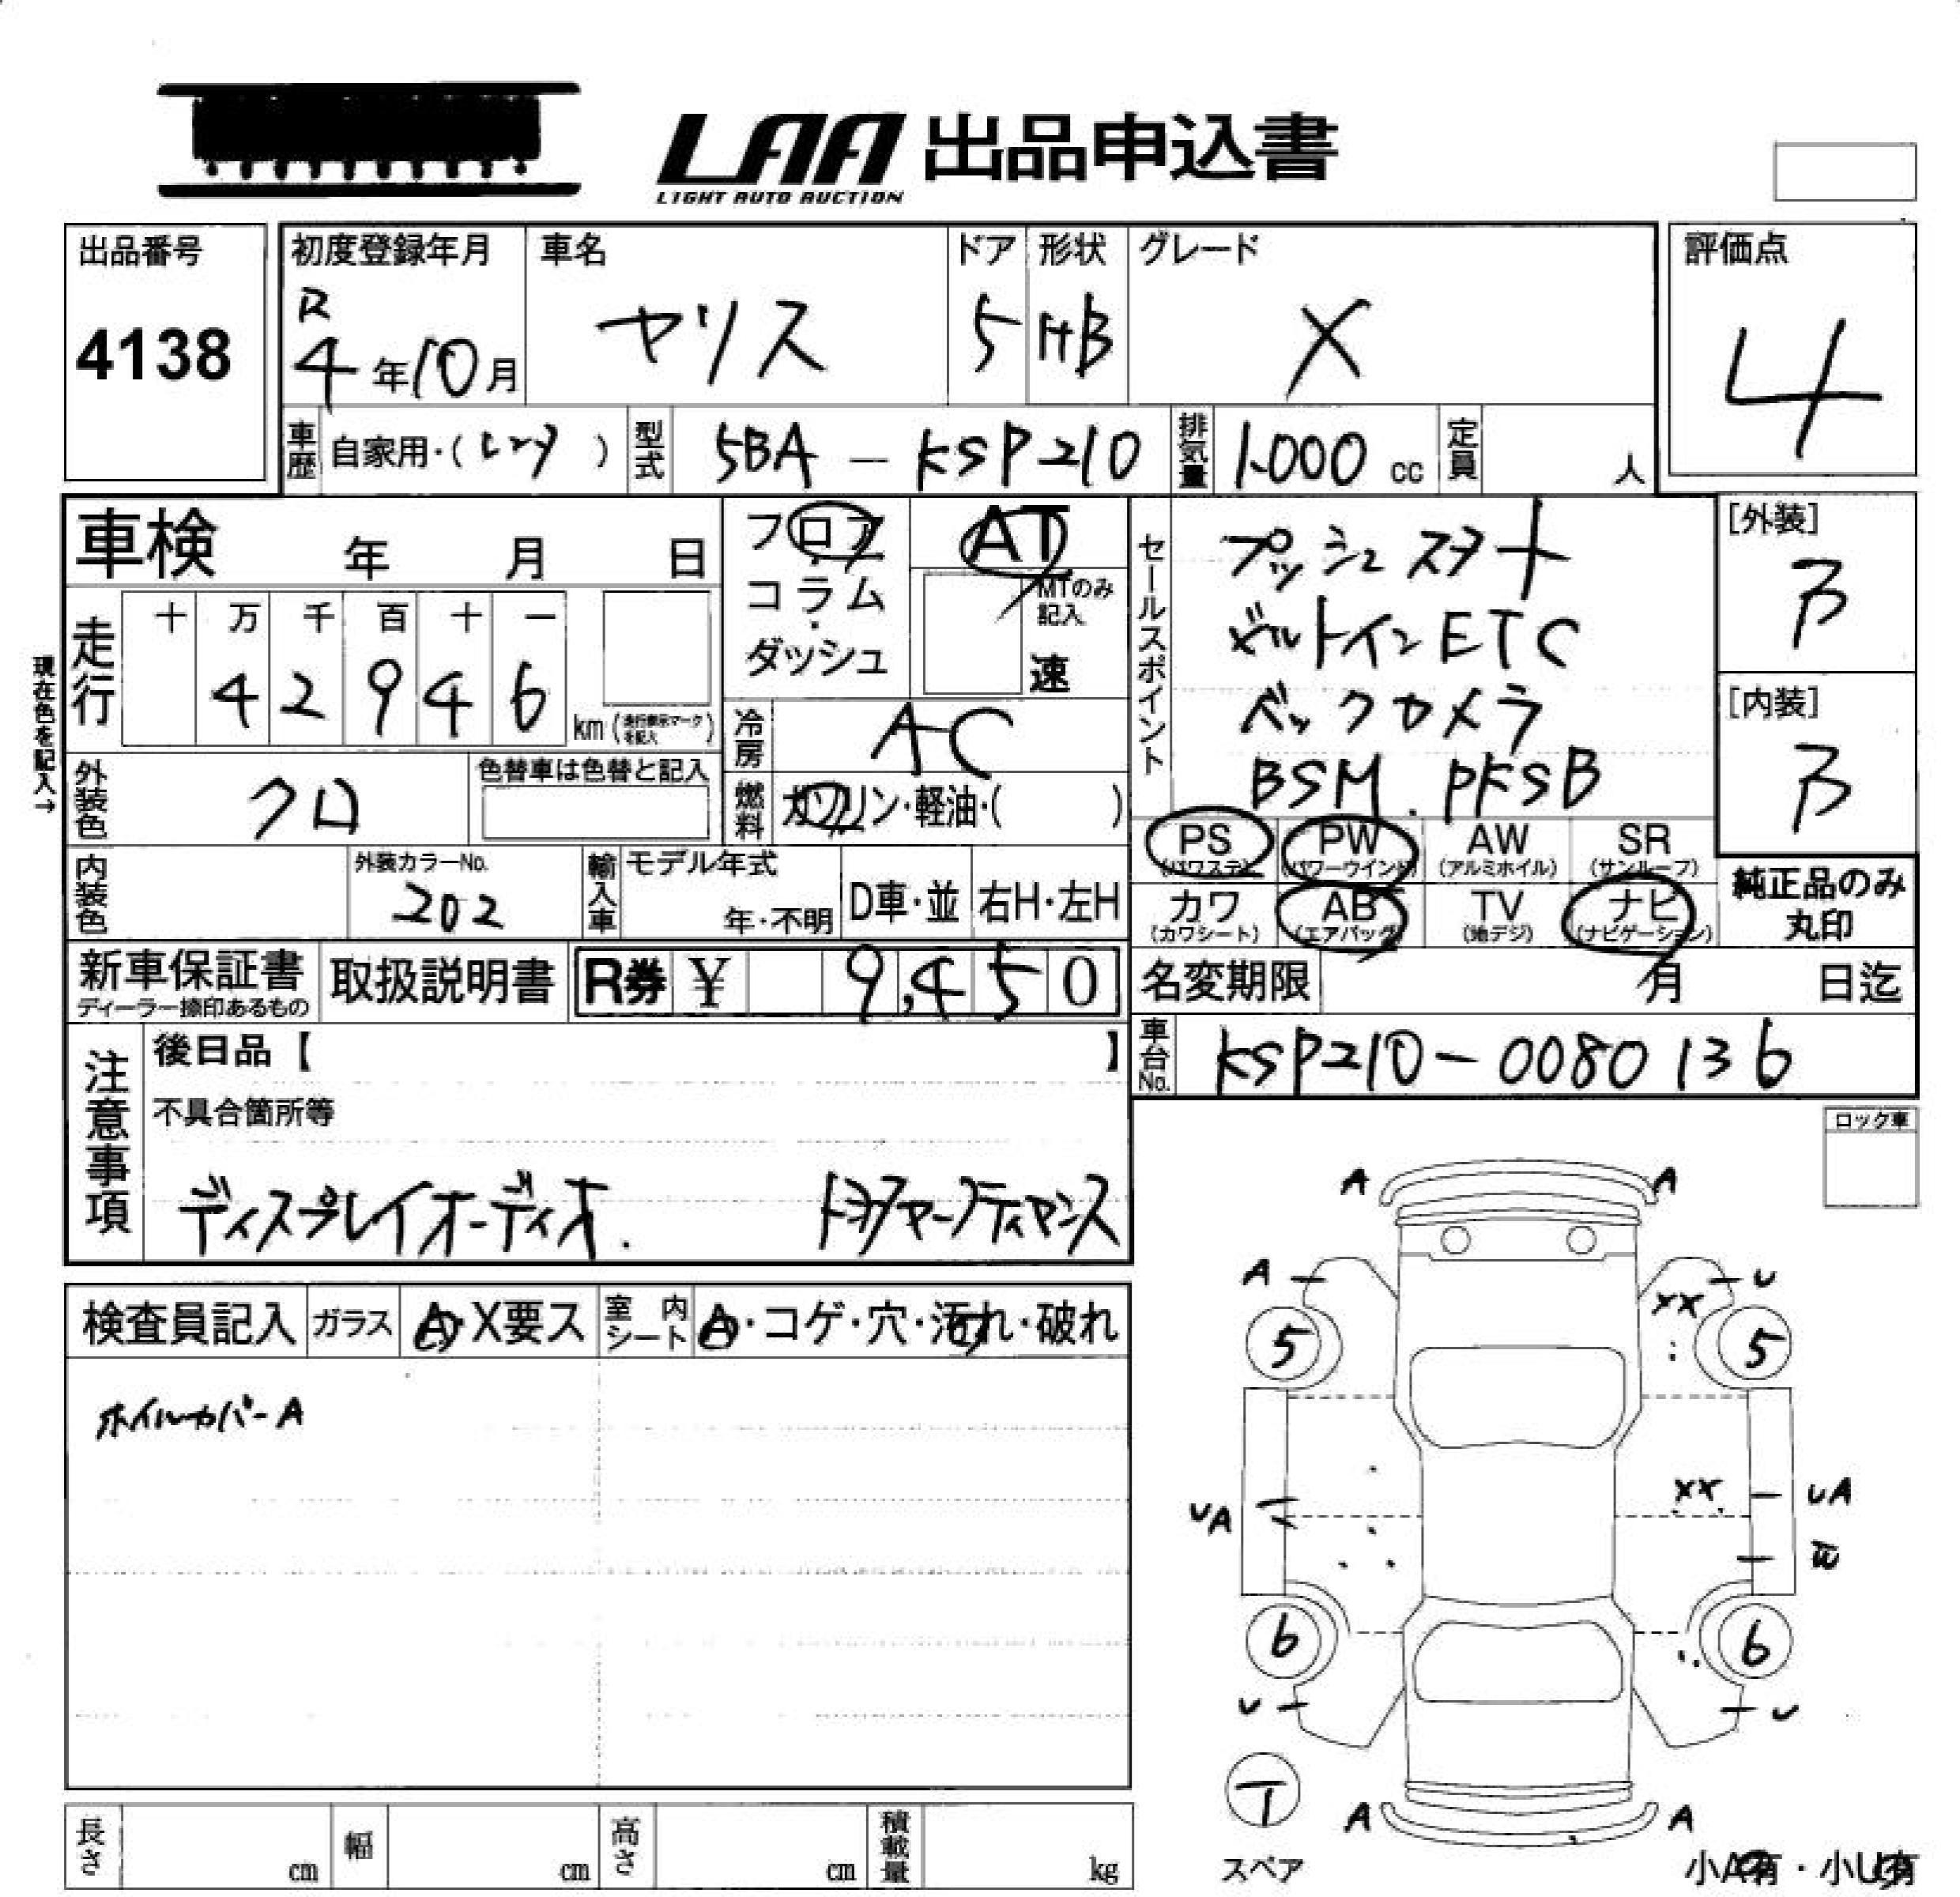 LAA 出品申込書
LIGHT AUTO AUCTION
出品番号
4138
初度登録年月
R
4年10月
車名
ヤリス
ドア
5
形状
HB
グレード
X
評価点
4
車歴
自家用・(レンタ)
型式
5BA - KSP210
排気量
1.000 cc
定員
人
車検 年 月 日
現在色を記入→
走行
十 万 千 百 十 一
4 2 9 4 6
km (走行表示マークを記入)
フロア・コラム・ダッシュ
AT
MTのみ記入
速
冷房
AC
外装色
クロ
色替車は色替と記入
燃料
ガソリン・軽油・( )
内装色
外装カラーNo.
202
輸入車
モデル年式
年・不明
D車・並
右H・左H
新車保証書
ディーラー捺印あるもの
取扱説明書
R券 ¥ 9,450
セールスポイント
プッシュスタート
ビルトインETC
バックカメラ
BSM. PKSB
[外装]
B
[内装]
B
PS (パワステ) PW (パワーウインド) AW (アルミホイル) SR (サンルーフ)
カワ (カワシート) AB (エアバッグ) TV (地デジ) ナビ (ナビゲーション)
純正品のみ丸印
名変期限 月 日迄
車台No.
KSP210-0080136
注意事項
後日品【 】
不具合箇所等
ディスプレイオーディオ.
ロック車
検査員記入
ガラス
A・X要ス
室内シート
A・コゲ・穴・汚れ・破れ
ホイルカバーA
A A
A U
XX
5 5
XX
UA UA
W
6 6
U U
T
スペア
A A
小A有・小U有
長さ cm
幅 cm
高さ cm
積載量 kg